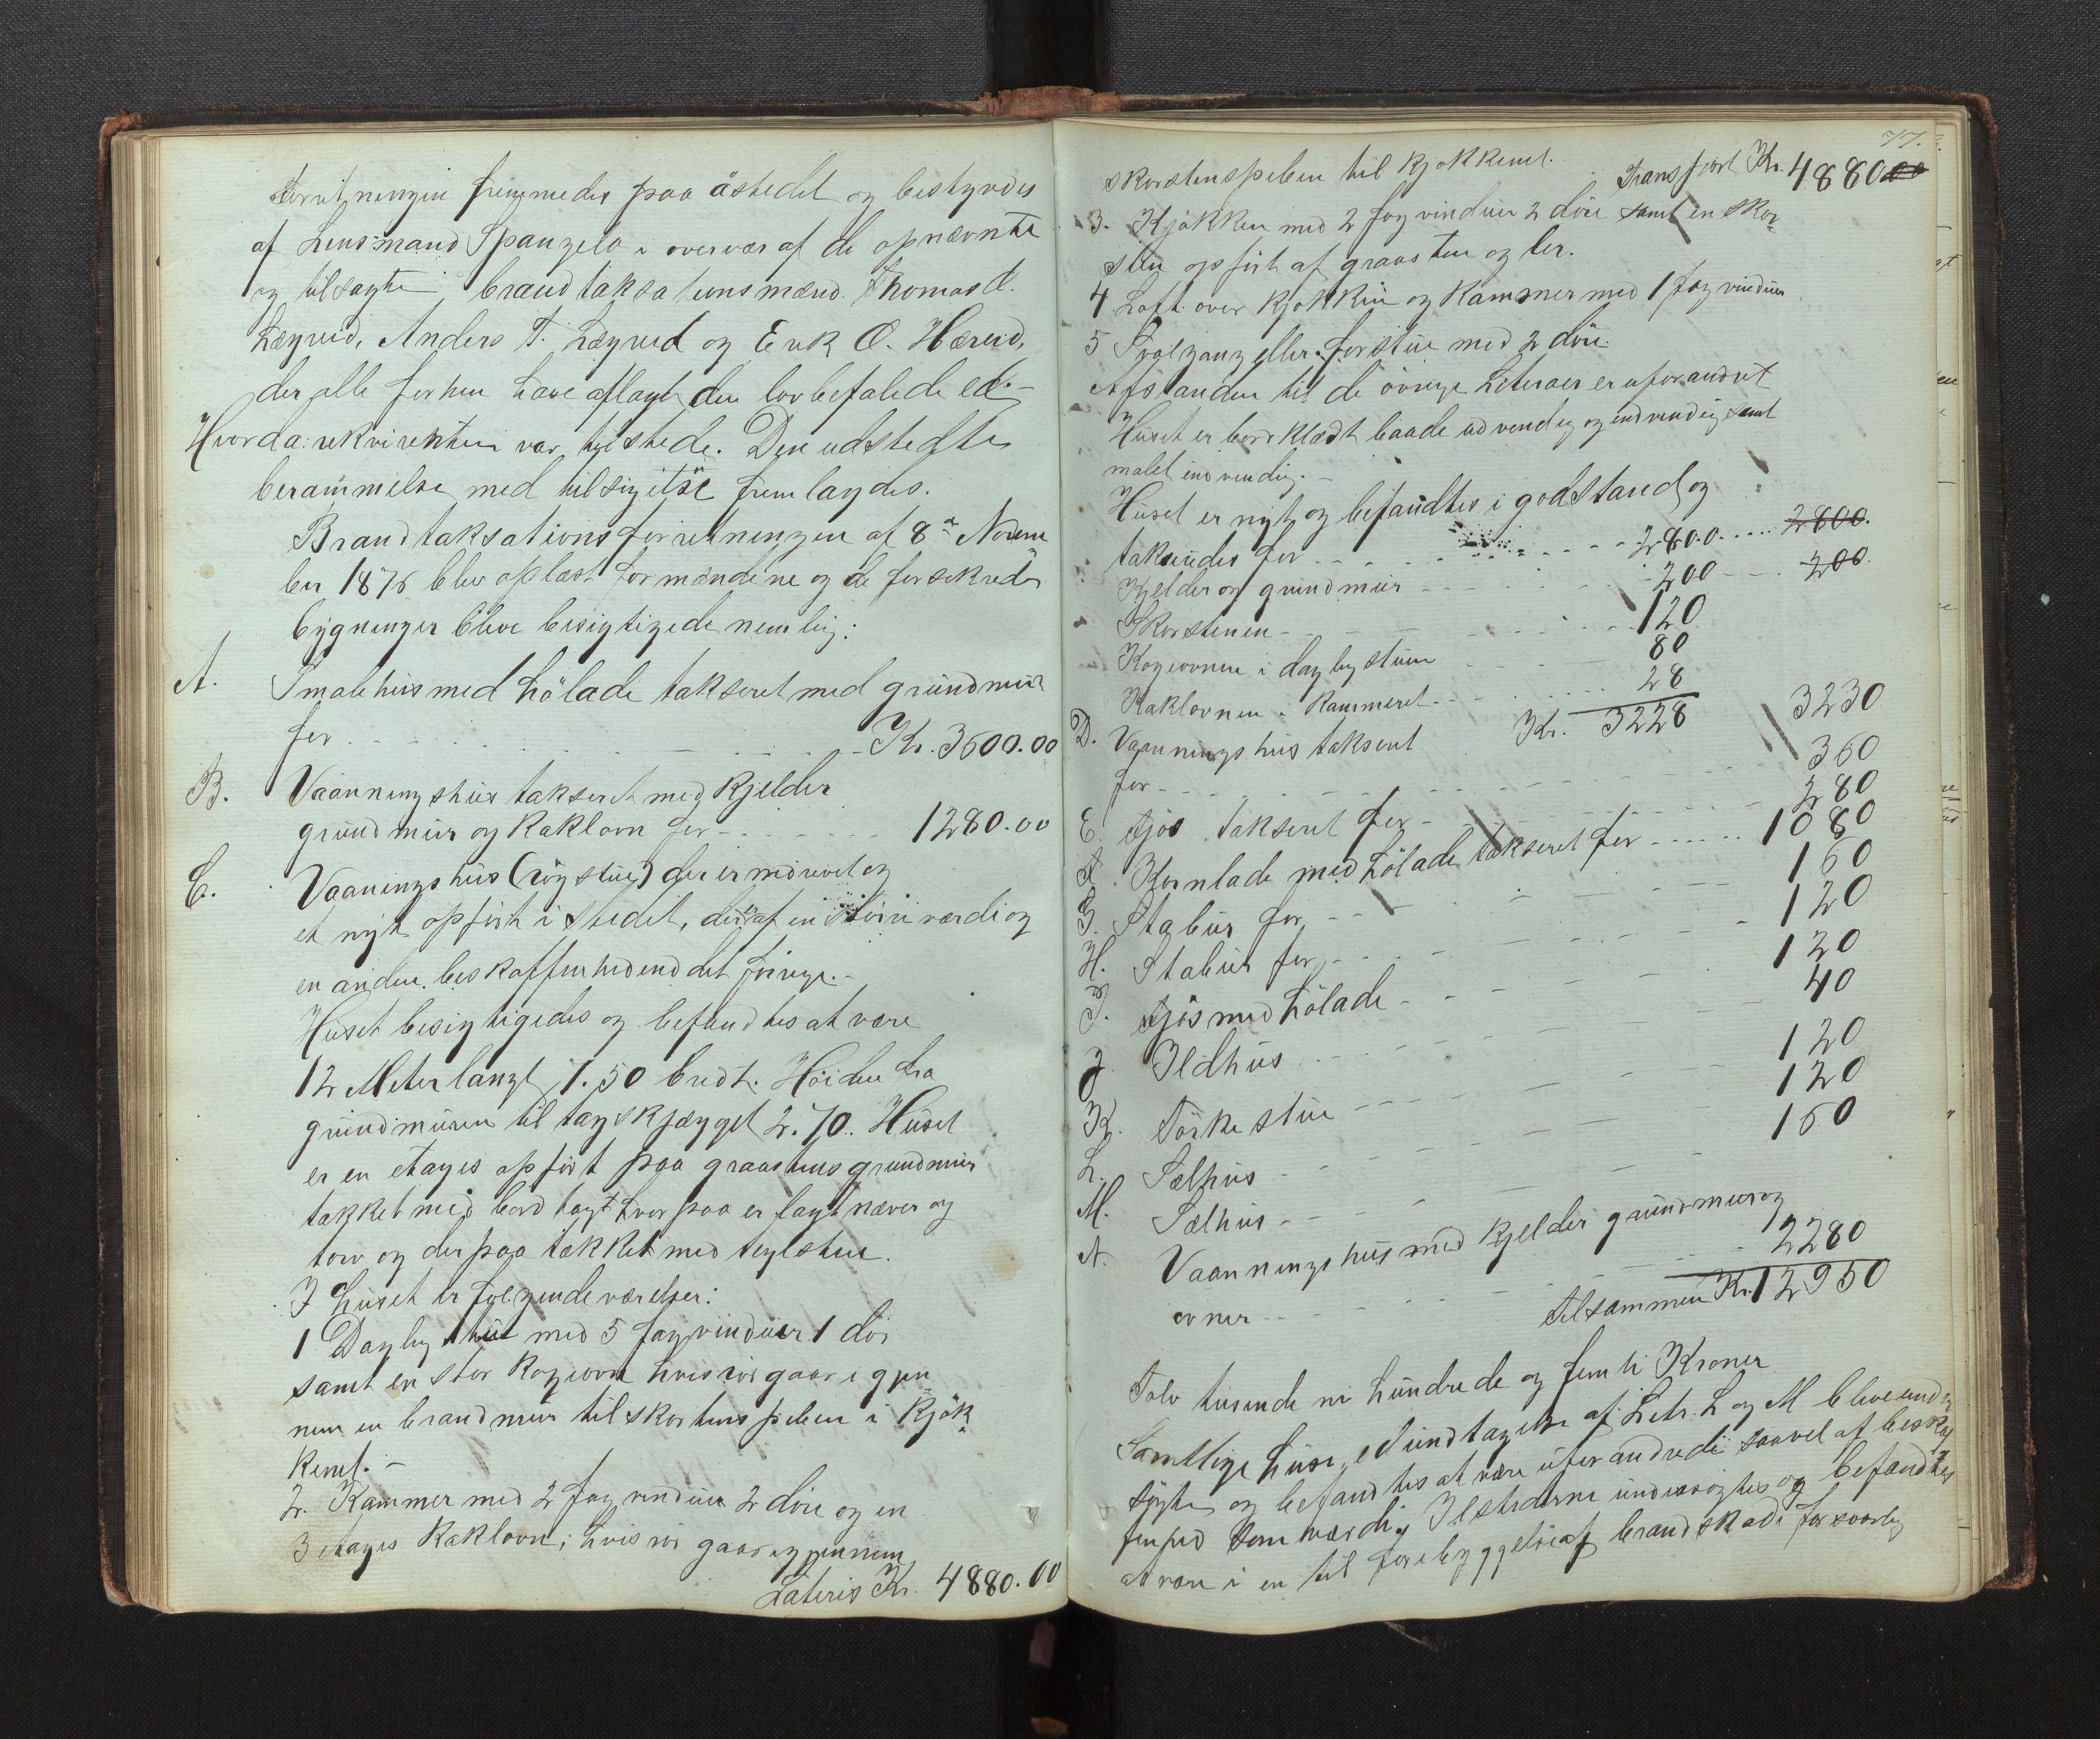 Forretningen fremmedes paa åstedet og bestyredes
af Lensmand Spangelo i overvær af de opnævnte
og tilsagte brandtaksationsmænd Thomas A.
Lægreid, Anders T. Lægreid og Erik O. Hæreid,
der alle forhen have aflagt den lovbefalede ed.-
Hvorda: rekvirenten var tilstede. Den udstedte
berammelse med tilsigelse fremlagdes.
Brandtaksationsforretningen af 8de Novem
ber 1876 blev oplæst for mændene og de forsikrede
bygninger bleve besigtigede nemlig:
A. Smalehus med hölade takseret med grundmur
for - - - Kr. 3600.00
B. Vaaningshus takseret med kjelder
grundmur og kaklovn for - - - 1280.00
C. Vaaningshus (rögstue) der er nedrevet og
et nyt opfört i stedet, der er af en större værdi og
en anden beskaffenhed end det forrige.-
Huset besigtigedes og befandtes at være
12 Meter langt, 7.50 bredt. Höiden fra
grundmuren til tagskjægget 2.70. Huset
er en etages opfört paa graastens grundmur
tækket med bord tagt hvorpaa er lagt næver og
torv og derpaa tækket med teglsten.
I huset er fölgende værelser:
1 Daglugstue med 5 fag vinduer 1 dör
samt en stor kogeovn hvis rör gaar i gjen
nem en brandmur til skorstenspiben i kjök-
kenet.-
2. Kammer med 2 fag vinduer 2 döre og en
3 etages kaklovn; hvis rör gaar igjennem
Lateris Kr. 4880.00
77.
skorstenspiben til kjökkenet. Transport Kr. 4880 00
3. Kjökken med 2 fag vinduer 2 döre samt en skor-
sten opfört af graasten og ler.
4 Loft over kjökken og kammer med 1 fag vinduer
5 Svalgang eller forstue med 2 döre.
Afstanden til de övrige Literaer er uforandret
Huset er bordklædt baade udvendig og indvendig samt
malet indvendig.-
Huset er nyt og befandtes i god stand og
takseredes for - - - 2800 - - - 2800.
Kjelder og grundmur - - - 200 - - - 200.
Skorstenen - - - 120
Kogeovnen i daglugstuen 80
Kaklovnen i kammeret - - - 28
Kr. 3228 3230
D. Vaaningshus takseret
for - - - 360
E. Fjös takseret for - - - 280
F. Kornlade med hölade takseret for - - - 1080
G. Stabur for - - - 160
H. Stabur for - - - 120
I. Fjös med hölade - - - 120
J Ildhus - - - 40
K. Törkestue - - - 120
L. Sælhus - - - 120
M. Sælhus - - - 160
N. Vaaningshus med kjelder grundmur og
ovner - - - 2280
Tilsammen Kr. 12950
Tolv tusende ni hundrede og femti Kroner
Samtlige huse, ed undtagelse af Litr. L og M bleve undér
sögte og befandtes at være uforandrede saavel af beskaf
fenhed som værdi. Ilstederne undersögtes og befandtes
at være i en til forebyggelse af brandskade forsvarlig